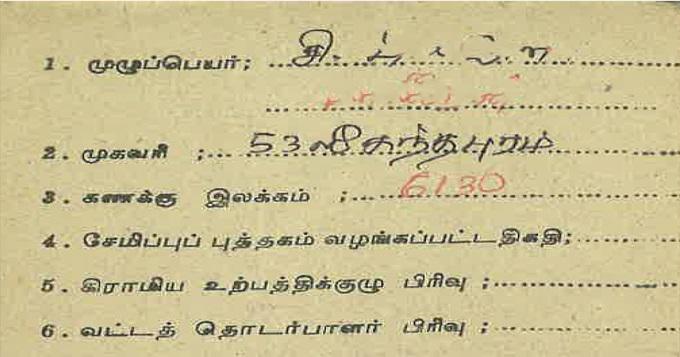 1. முழுப்பெயர்; சி.
2. முகவரி ; 53 ஸ்ரீகந்தபுரம்
3. கணக்கு இலக்கம் ; 6130
4. சேமிப்புப் புத்தகம் வழங்கப்பட்ட திகதி;
5. கிராமிய உற்பத்திக்குழு பிரிவு ;
6. வட்டத் தொடர்பாளர் பிரிவு ;